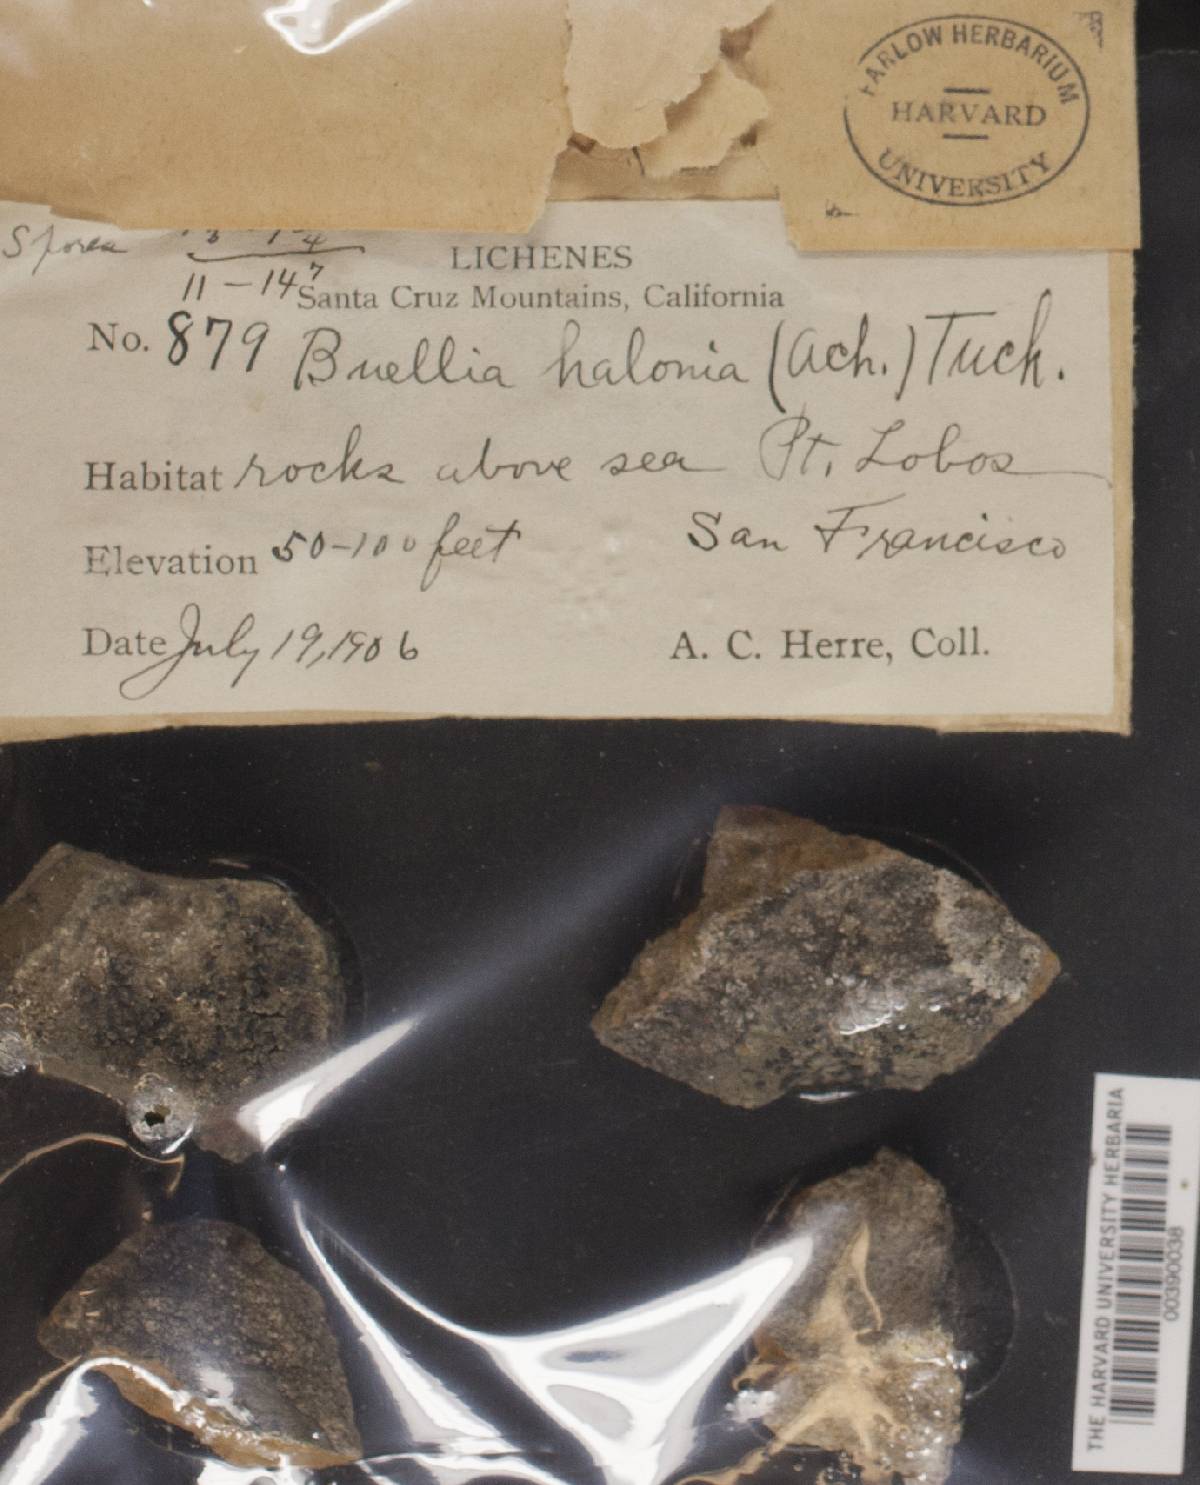 FARLOW HERBARIUM
HARVARD
UNIVERSITY
Spores
11-14
LICHENES
Santa Cruz Mountains, California
No. 879 Buellia halonia (Ach.) Tuck.
Habitat rocks above sea Pt. Lobos
San Francisco
Elevation 50-100 feet
Date July 19, 1906
A. C. Herre, Coll.
THE HARVARD UNIVERSITY HERBARIA
00390038